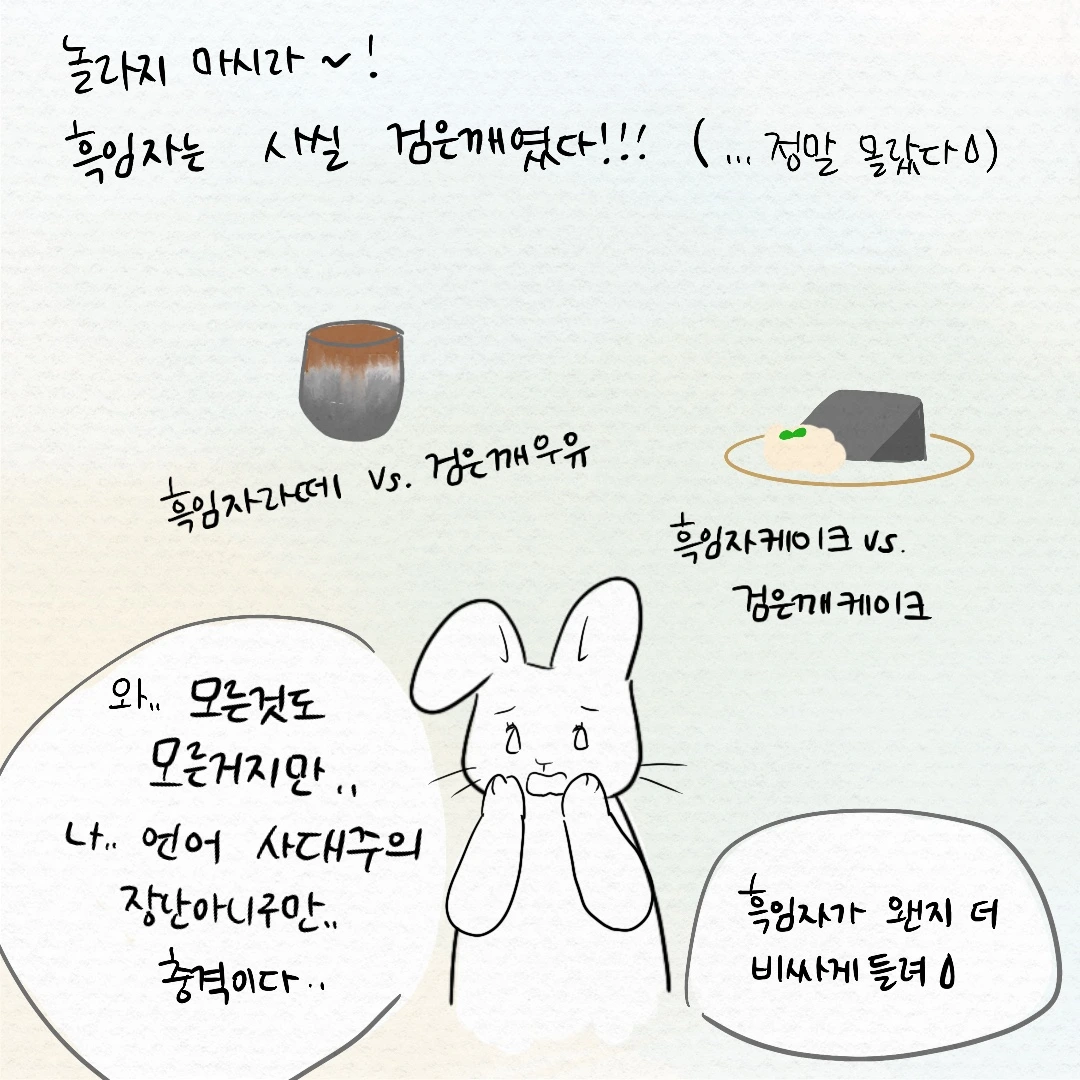 놀라지 마시라~!
흑임자는 사실 검은깨였다!!! (... 정말 몰랐다)
흑임자라떼 vs. 검은깨우유
흑임자케이크 vs.
검은깨케이크
와.. 모른것도
모른거지만..
나.. 언어 사대주의
장난아니구만..
충격이다..
흑임자가 왠지 더
비싸게 들려